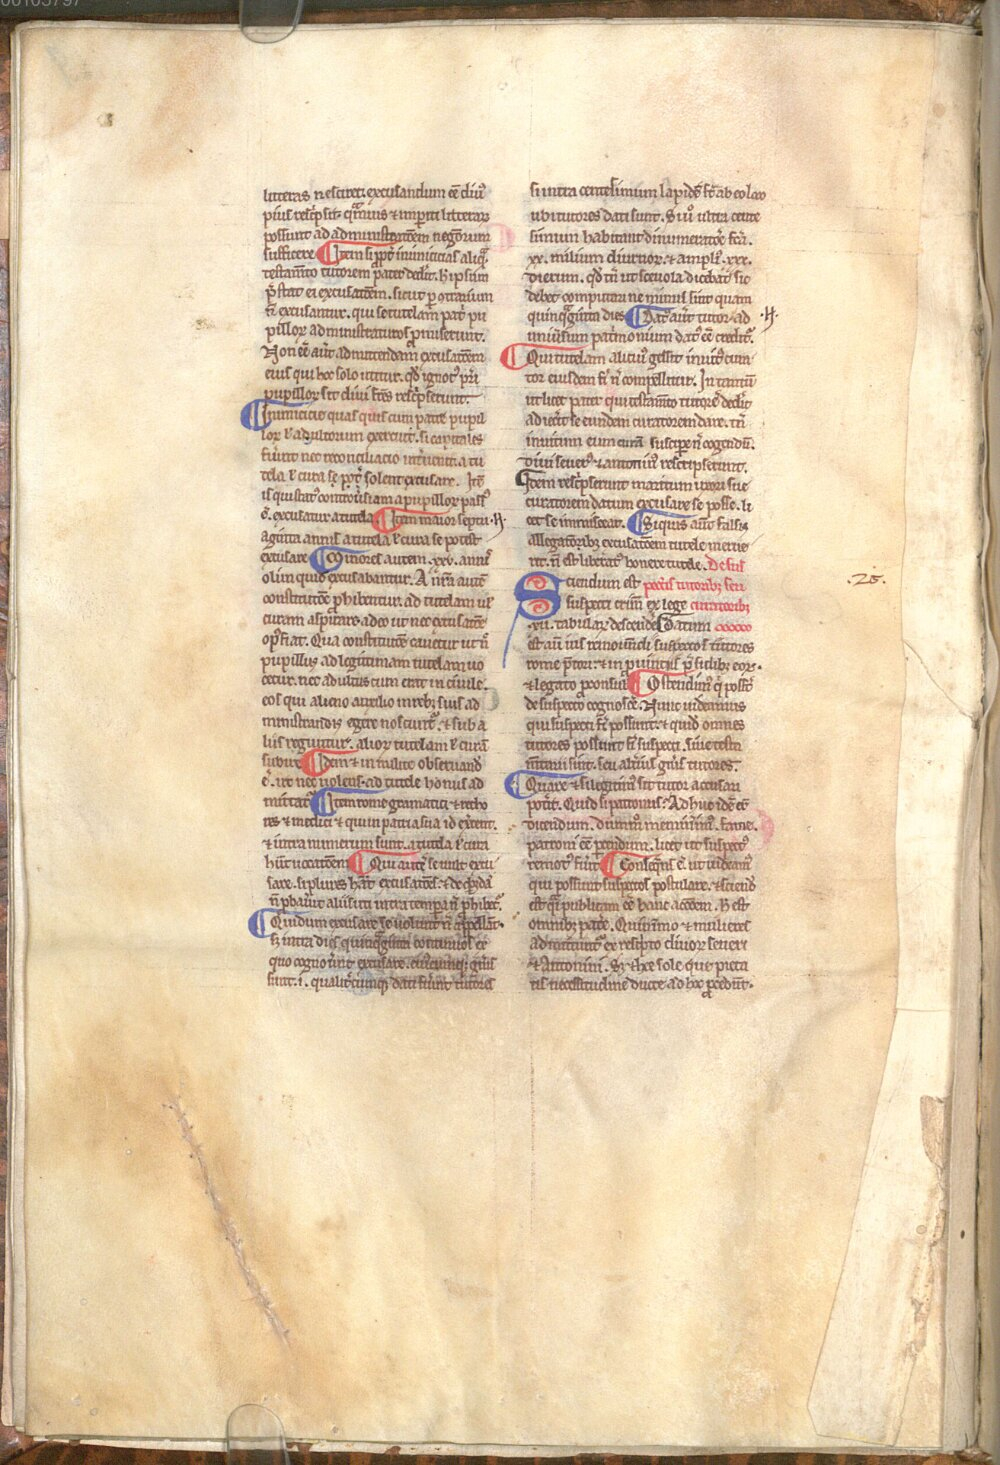 litteras nesciret. excusandum ee diuꝰ
pius rescͥpsit. qͣmuis ⁊ imꝑiti litteraꝝ
possunt ad administratoem negotioꝝ
sufficere ¶ Item si ꝓpt͛ inimicicias aliqͥs
testam̅to tutorem pater dedit. h̵ ipsum
p̅stat ei excusatoem. sicut ꝑ ↄtrarium
n̅ excusantur. qui se tutelam patͥ pu
pilloꝝ administraturos ꝓmiserunt.
Non ee aut̅ admittendam excusatoem
eius qui hoc solo utitur. qd̵ ignotꝰ pr̅i
pupilloꝝ sit diui fr̅es rescͥpserunt.
¶ Inimicicie quas quis cum patre pupil
loꝝ ł adultorum exercuit. si capitales
fuerunt nec reconciliacio int͛uenit. a tu
tela ł cura se pot͛ solent excusare. Ite̅
is qui statꝰ controu͛siam a pupilloꝝ passꝰ
e̅. excusatur a tutela ¶ Item maior septu
aginta annis a tutela ł cura se potest
excusare ¶ Minores autem .xxv. annis
olim quid̅ excusabantur. A nr̅a aut̅
constitutoe ꝓhibentur. ad tutelam uł
curam aspirare. adeo ut nec excusatoe
opꝰ fiat. Qua constitutoe cauetur ut n̅
pupillus ad legittimam tutelam uo
cetur. nec adultus cum erat inciuile.
eos qui alieno auxilio in rebꝫ suis ad
ministrandis egere noscunt͛. ⁊ sub a
liis reguntur. alioꝝ tutelam ł cura̅
subire ¶ Idem ⁊ in milite obseruand̅
e̅. ut nec uolens. ad tutele honus ad
mittatͬ ¶ Item rome gramatici ⁊ retho
res ⁊ medici ⁊ qui in patria sua id exercent.
⁊ intra numerum sunt. a tutela ł cura
hn̅t uacatoem ¶ Qui aut̅ se uult excu
sare. si plures habt̅ excusatoes. ⁊ de qͥbꝰda̅
n̅ ꝓbauit aliis uti intra tempora n̅ ꝓhibet͛.
¶ Qui dum excusare se uolunt n̅ appellant.
sꝫ intra dies quinqͣginta continuos ex
quo cognouerint excusare. cuiuscumqꝫ gn̅is
sunt. i. qualit͛cumqꝫ dati fuerint tutores
si intra centesimum lapide̅ st̅ ab eo loco
ubi tutores dati sunt. Si u͛o ultra cente
simum habitant dinumeratoe fc̅a.
xx. milium diurnoꝝ. ⁊ ampliꝰ. xxx.
dierum. qd̵ tn̅ ut sceuola dicebat sic
debet computari ne minus sint quam
quinqͣginta dies ¶ Datꝰ aut̅ tutor ad
uniu͛sum patͥmonium datꝰ ee creditͬ.
¶ Qui tutelam alicuiꝰ gessit inuitꝰ cura
tor eiusdem fi̅ n̅ compellitur. In tantu̅
ut licet pater qui testam̅to tutore̅ dedit
adiec̅it se eundem curatorem dare. tn̅
inuitum eum cura̅ suscipe̅ n̅ cogendu̅.
Diui seuerꝰ ⁊ antoninꝰ rescripserunt.
¶ Item rescͥpserunt maritum uxori sue
curatorem datum excusare se posse. li
cet se immisceat. ¶ Siquis aut̅ falsis
allegatoibꝫ excusatoem tutele meruer
it. n̅ est liberatꝰ honere tutele. De sus
Sciendum est pectis tutoribꝫ seu
suspecti crim̅ ex lege curatoribꝫ
.xii. tabulaꝝ descende ¶ Datum
est aut̅ ius remouendi suspectos tutores
rome p̅tori. ⁊ in ꝓuinciis p̅sidibꝫ eoꝝ.
⁊ legato ꝓconsul ¶ Ostendimꝰ qͥ poss̅t
de suspecto cognosce͛. Nunc uideamus
qui suspecti fi̅ possunt. ⁊ quid̅ omnes
tutores possunt fi̅ suspecti. siue testa
mentarii sint. seu alt͛ius gn̅is tutores.
¶ Quare ⁊ si legittimꝰ sit tutor accusari
poterit. Quid si patronus? Adhuc ide̅ eͭ
dicendum. dummͦ meminimꝰ. fame.
patroni ee ꝑcendum. licet ut suspectꝰ
remotꝰ fu͛it ¶ Conseqͣns e̅. ut uideamꝰ
qui possunt suspectos postulare. ⁊ sciend̅
est qͣsi publicam ee hanc actoem. h̵ est
omnibꝫ pate͛. Quinimo ⁊ mulieres
admittuntͬ ex rescͥpto diuoꝝ seueri
⁊ Antonini. Sꝫ hee sole que pieta
tis necessitudine ducte ad hoc ꝓcedunt.
.26.